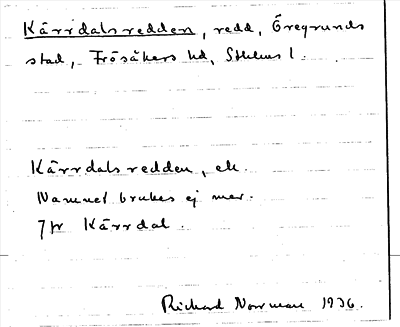 Kärrdalsredden, redd, Öregrunds
stad, Frösåkers hd, Sthlms l.
Kärrdalsredden, ek.
Namnet brukas ej mer.
Jfr Kärrdal.
Rickard Norrman 1936.